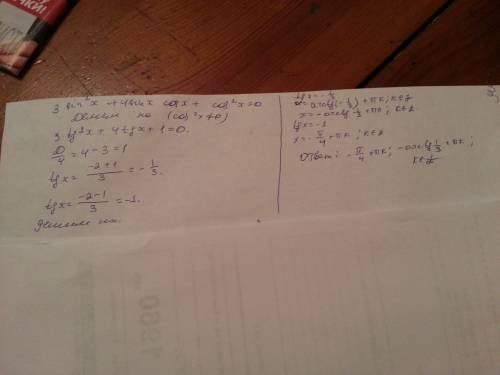 3 sin²x + 4 sin x cos x + cos²x = 0
Делим на (cos²x ≠ 0)
3 tg²x + 4 tg x + 1 = 0.
D/4 = 4 - 3 = 1
tg x = (-2+1)/3 = -1/3.
tg x = (-2-1)/3 = -1.
tg x = -1/3
x = arctg(-1/3) + πk; k∈Z
x = -arctg 1/3 + πk, k∈Z.
tg x = -1
x = -π/4 + πk; k∈Z
Ответ: -π/4 + πk; -arctg 1/3 + πk;
k∈Z